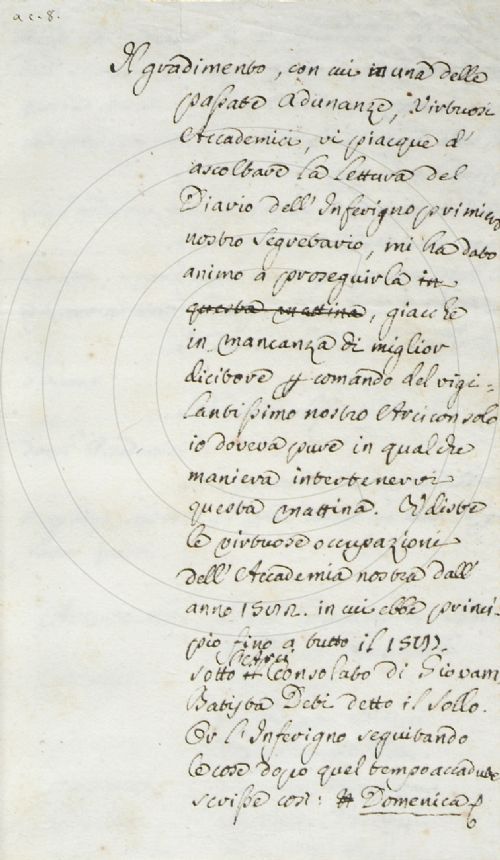 a c. 8.
Il gradimento, con cui in una delle
passate Adunanze, Virtuosi
Accademici, vi piacque d'
ascoltare la lettura del
Diario dell' Inferigno primiero
nostro Segretario, mi ha dato
animo a proseguirla in
questa mattina, giacche
in mancanza di miglior
dicitore p comando del vigi=
lantissimo nostro Arciconsolo
io doveva pure in qualche
maniera intertenervi
questa mattina. Udiste
le virtuose occupazioni
dell' Accademia nostra dall'
anno in cui ebbe princi-
pio fino a tutto il
sotto l'Arci Consolato di Giovam
Batista Deti detto il Sollo.
Or l' Inferigno seguitando
le cose dopo quel tempo accadute
scrisse così: Domenica